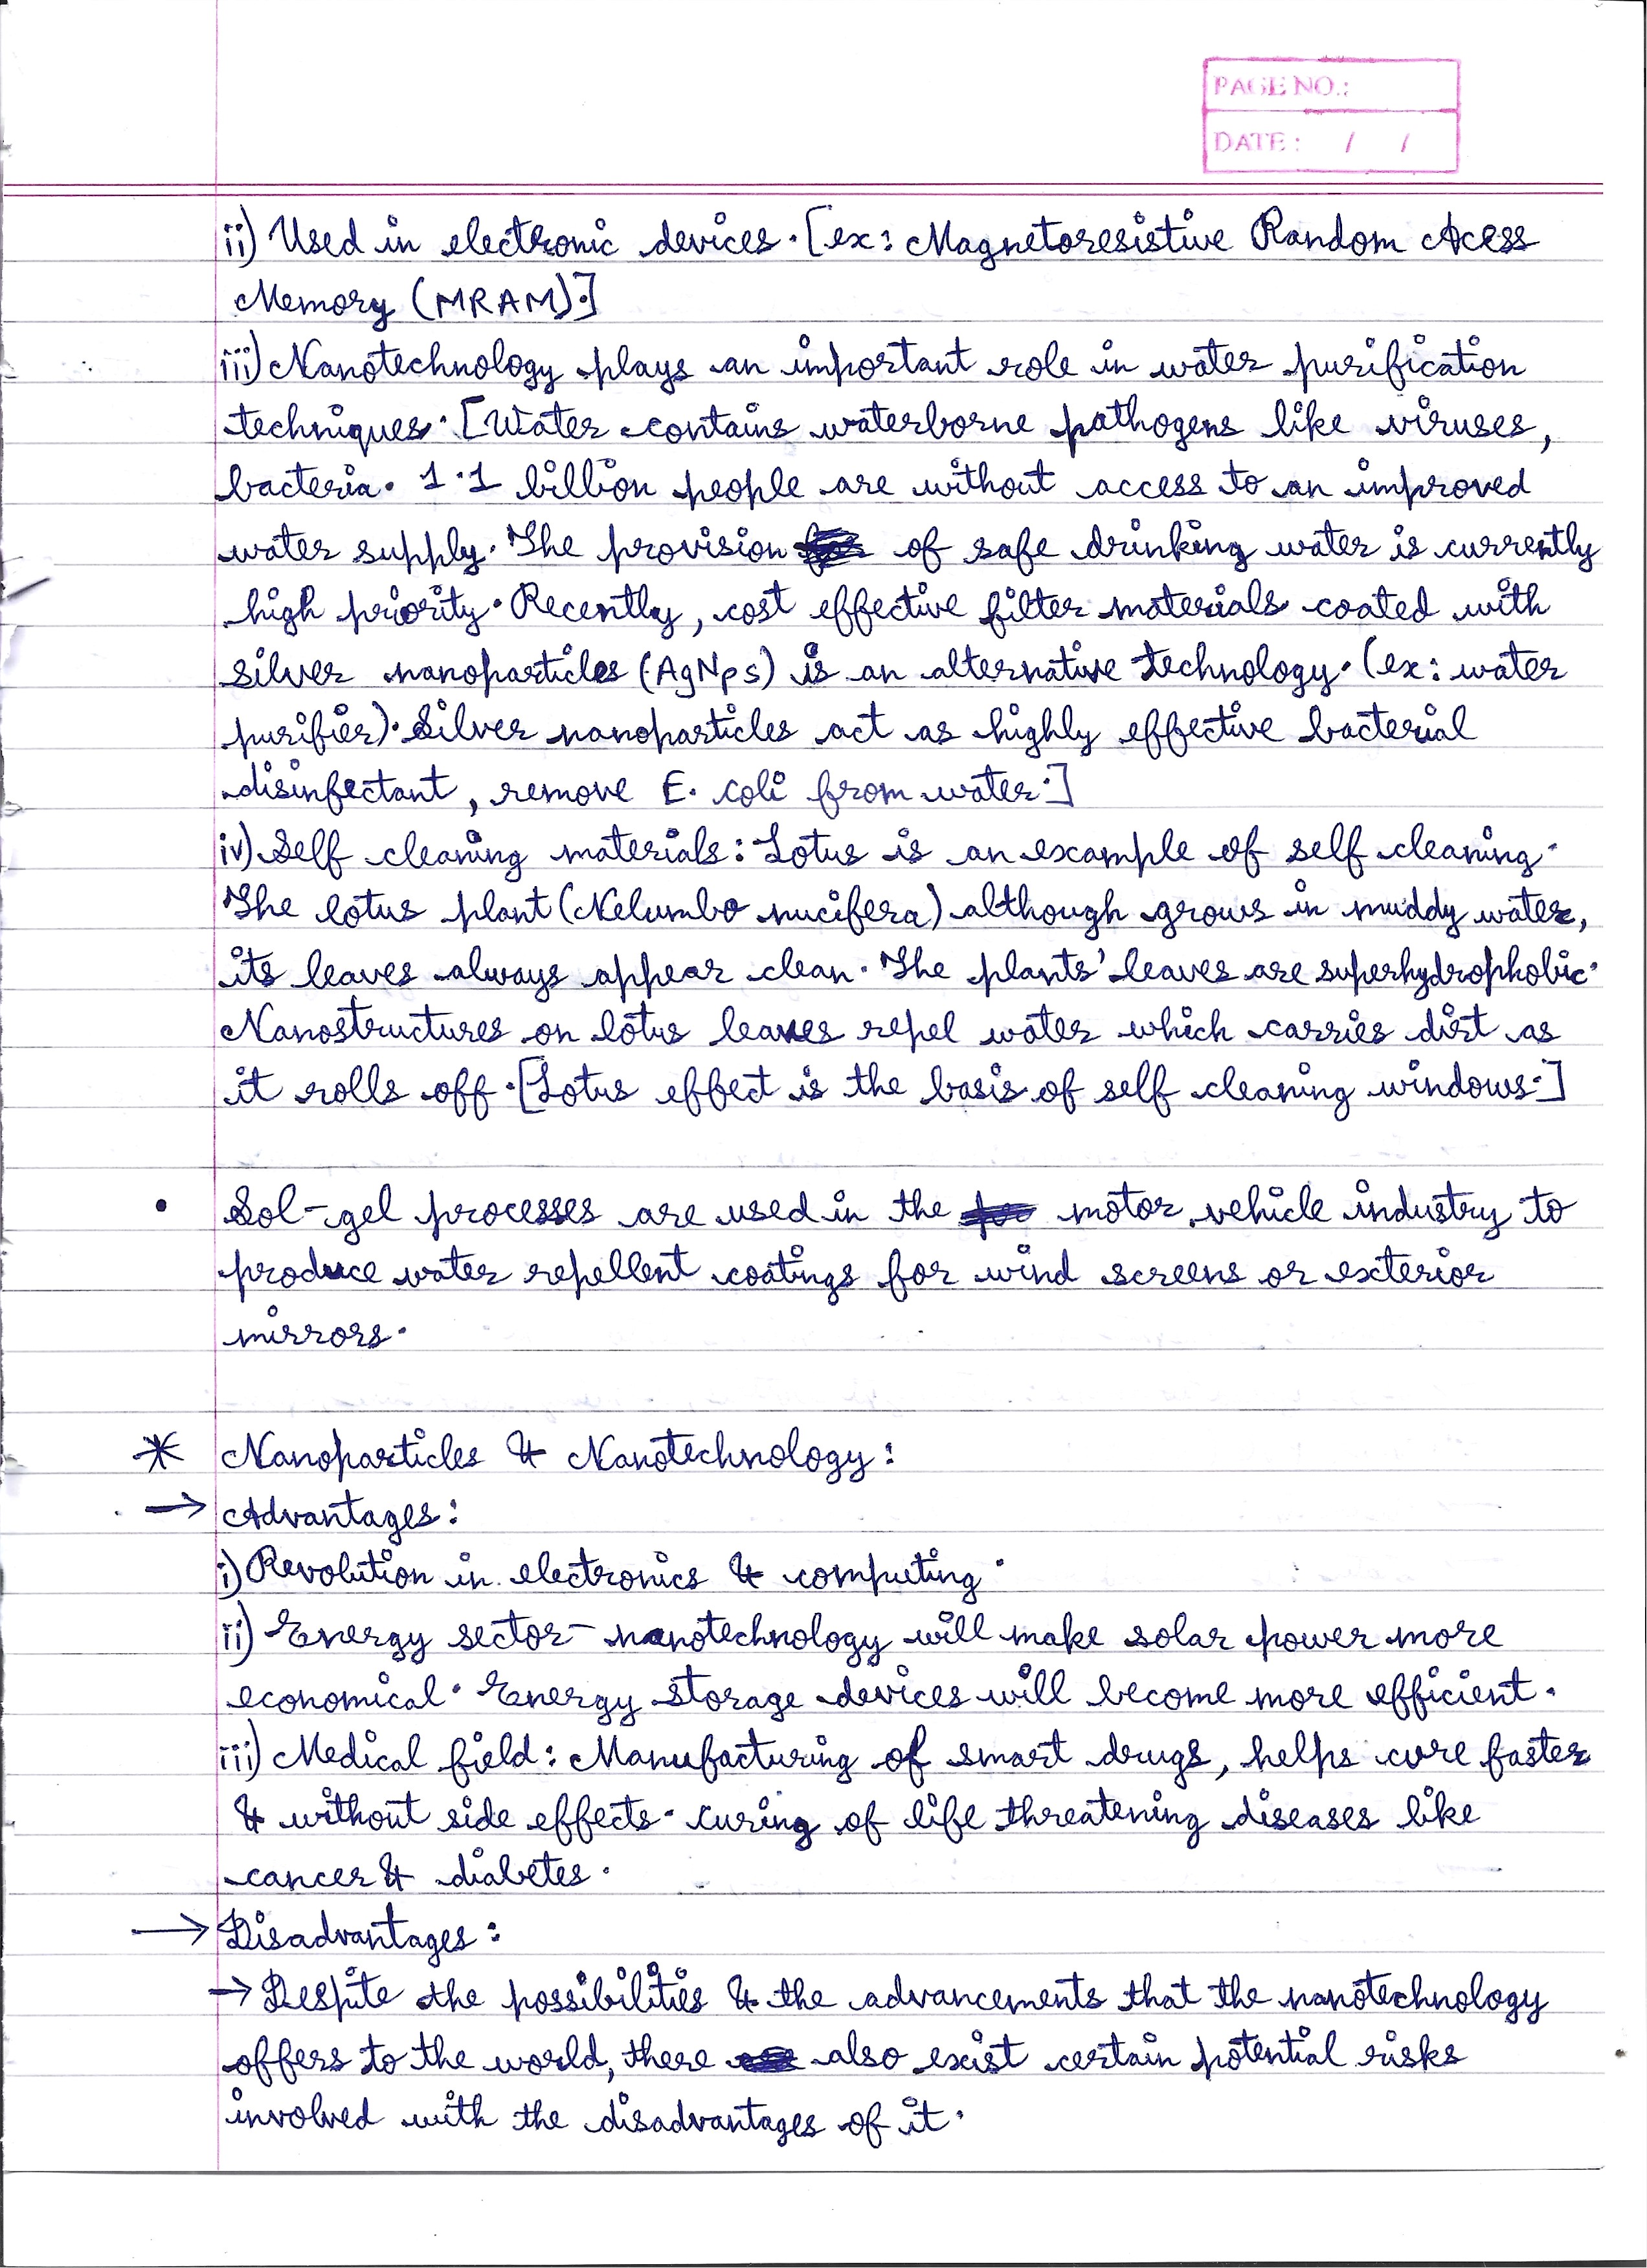 PAGE NO.:
DATE: / /
ii) Used in electronic devices. [ex: Magnetoresistive Random Acess
Memory (MRAM).]
iii) Nanotechnology plays an important role in water purification
techniques. [Water contains waterborne pathogens like viruses,
bacteria. 1.1 billion people are without access to an improved
water supply. The provision of safe drinking water is currently
high priority. Recently, cost effective filter materials coated with
silver nanoparticles (AgNps) is an alternative technology. (ex: water
purifier). Silver nanoparticles act as highly effective bacterial
disinfectant, remove E. coli from water.]
iv) Self cleaning materials: Lotus is an example of self cleaning.
The lotus plant (Nelumbo nucifera) although grows in muddy water,
its leaves always appear clean. The plants' leaves are superhydrophobic.
Nanostructures on lotus leaves repel water which carries dirt as
it rolls off. [Lotus effect is the basis of self cleaning windows.]
• Sol-gel processes are used in the motor vehicle industry to
produce water repellent coatings for wind screens or exterior
mirrors.
* Nanoparticles & Nanotechnology:
→ Advantages:
i) Revolution in electronics & computing.
ii) Energy sector - nanotechnology will make solar power more
economical. Energy storage devices will become more efficient.
iii) Medical field: Manufacturing of smart drugs, helps cure faster
& without side effects. curing of life threatening diseases like
cancer & diabetes.
→ Disadvantages:
→ Despite the possibilities & the advancements that the nanotechnology
offers to the world, there also exist certain potential risks
involved with the disadvantages of it.